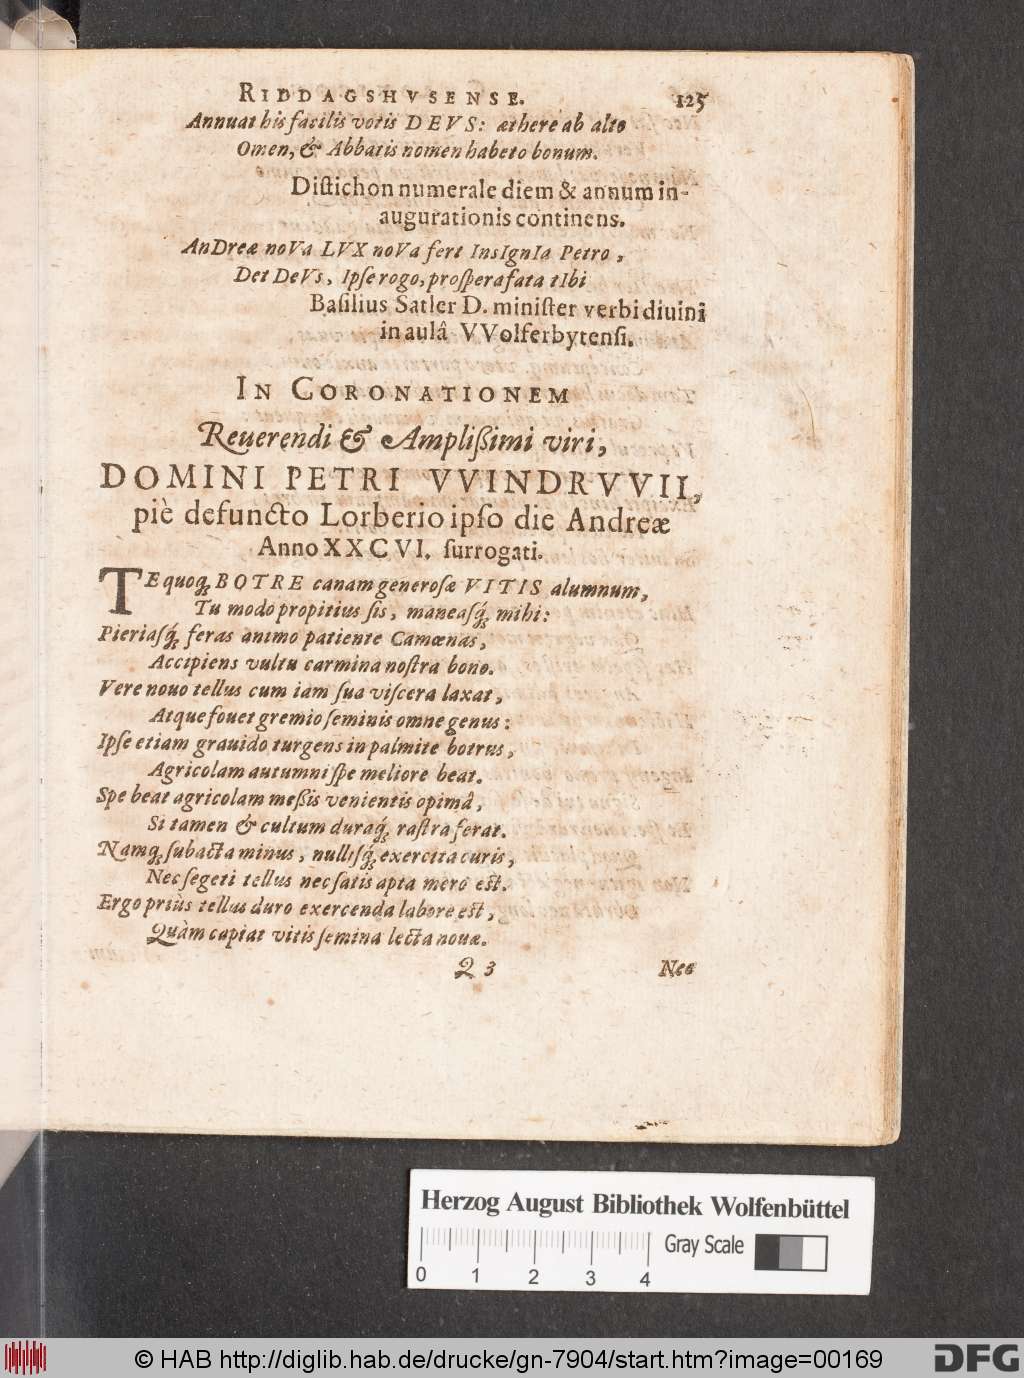 RIDDAGSHVSENSE. 125
Annuat his facilis votis DEVS: æthere ab alto
Omen, & Abbatis nomen habeto bonum.
Distichon numerale diem & annum in-
augurationis continens.
AnDreæ noVa LVX noVa fert InsIgnIa Petro,
Det DeVs, Ipse rogo, prospera fata tIbi
Basilius Satler D. minister verbi diuini
in aulâ VVolferbytensi.
IN CORONATIONEM
Reuerendi & Amplißimi viri,
DOMINI PETRI VVINDRVVII,
piè defuncto Lorberio ipso die Andreæ
Anno XXCVI. surrogati.
TE quoq; BOTRE canam generosæ VITIS alumnum,
Tu modo propitius sis, maneasq́; mihi:
Pieriasq́; feras animo patiente Camœnas,
Accipiens vultu carmina nostra bono.
Vere nouo tellus cum iam sua viscera laxat,
Atque fouet gremio seminis omne genus:
Ipse etiam grauido turgens in palmite botrus,
Agricolam autumni spe meliore beat.
Spe beat agricolam meßis venientis opimâ,
Si tamen & cultum duraq́; rastra ferat.
Namq; subacta minus, nullisq́; exercita curis,
Nec segeti tellus nec satis apta mero est.
Ergo priùs tellus duro exercenda labore est,
Quàm capiat vitis semina lecta nouæ.
Q 3 Nec
Herzog August Bibliothek Wolfenbüttel
Gray Scale
0 1 2 3 4
© HAB http://diglib.hab.de/drucke/gn-7904/start.htm?image=00169
DFG